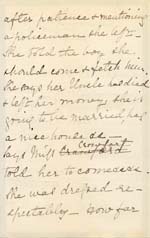 after patience & mentioning
a policeman she left.
She told the boy she
should come & fetch him.
He says her Uncle has died
& left her money, she is
going to be married, has
a nice house &c —
Says Miss Crawford Crawford
told her to come &c &c.
She was dressed re-
spectably — How far